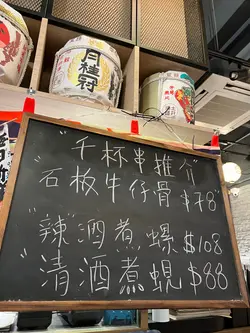 月桂冠
"千杯串推介"
石板牛仔骨 $78
"辣"酒煮螺 $108
"清酒煮蜆 $88